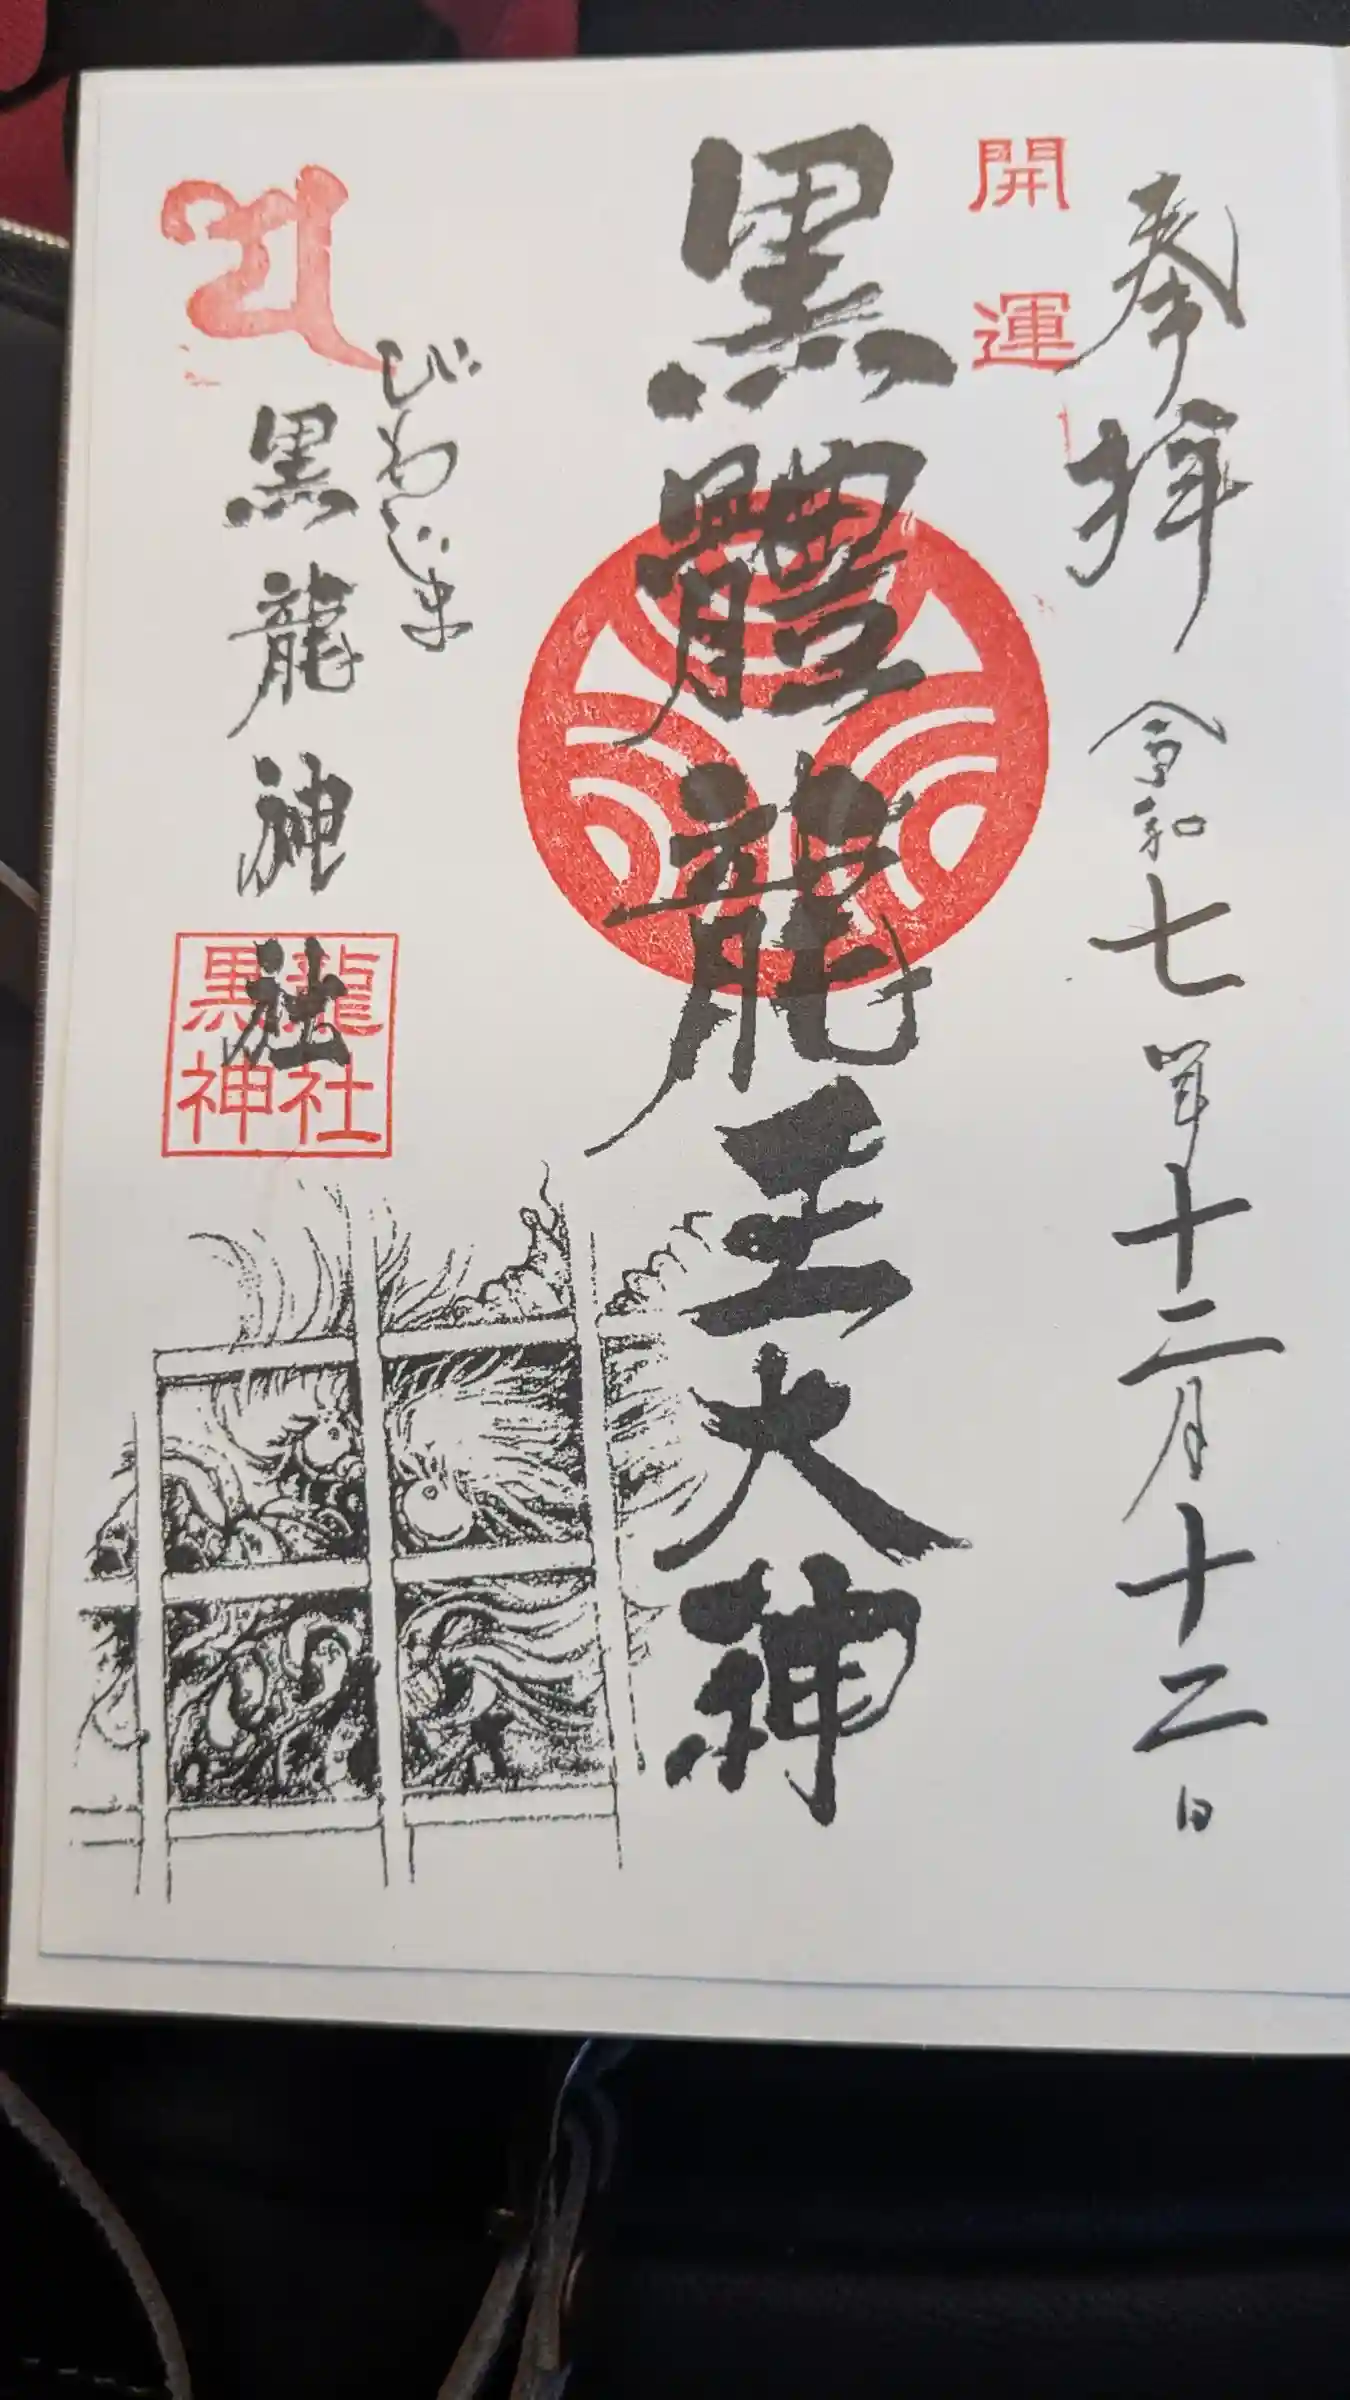 奉拝 令和七年十二月十二日
開運
黒體龍王大神
びわじま
黒龍神社
黒龍
神社